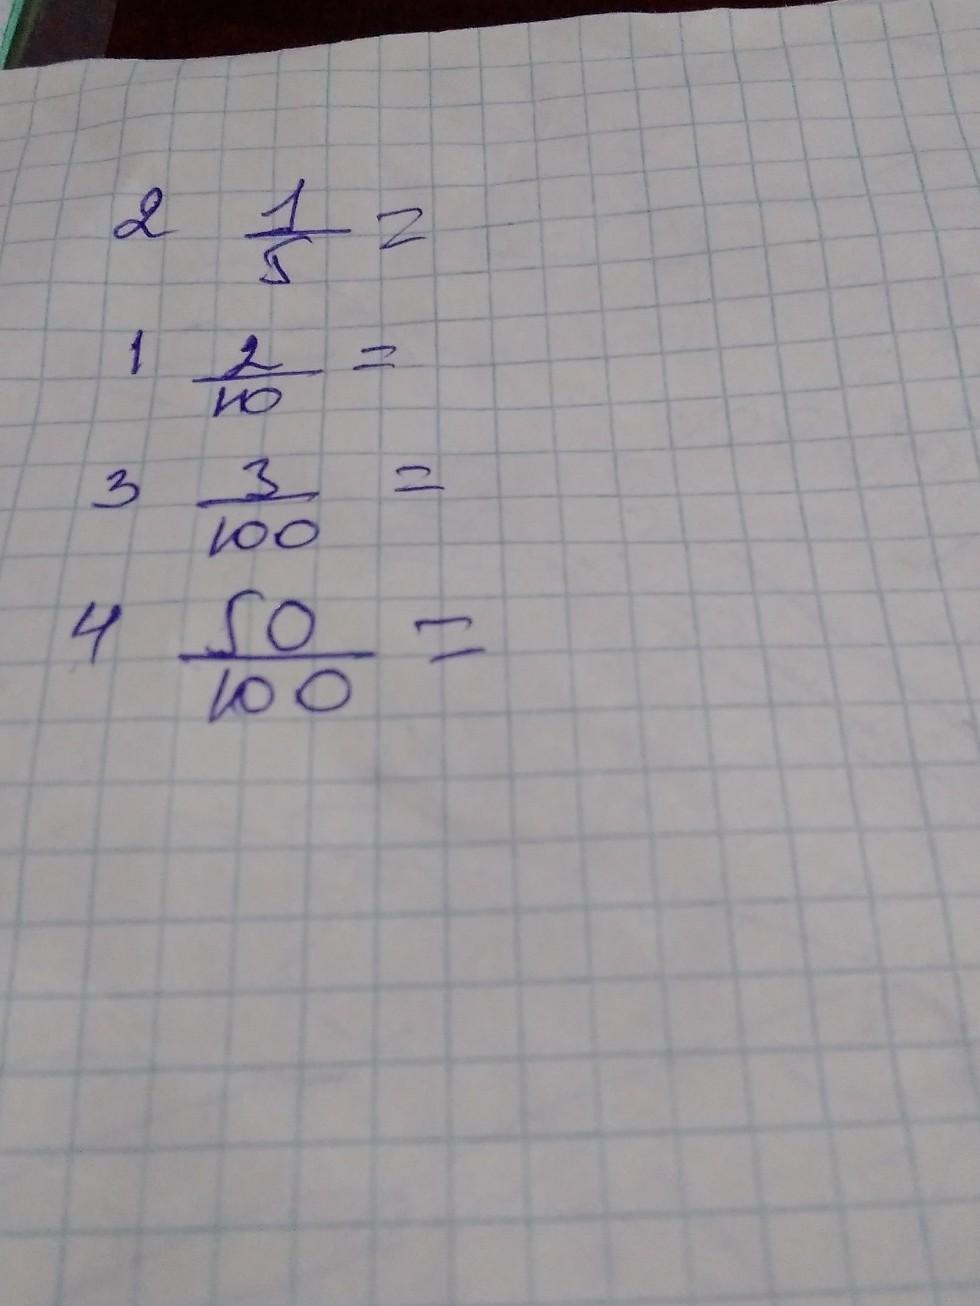 2 1/5 =
1 2/10 =
3 3/100 =
4 50/100 =